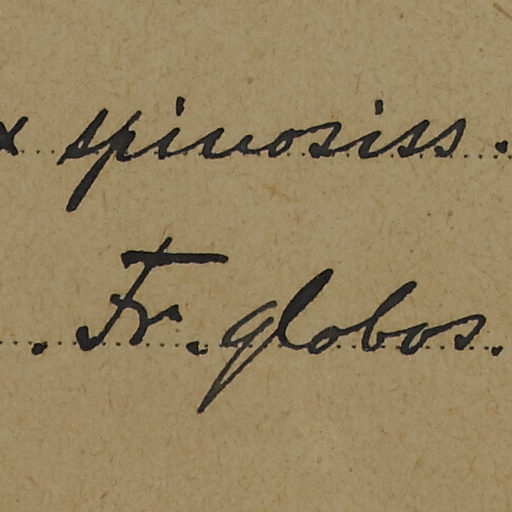 x spinosiss.
. Fr. globos.